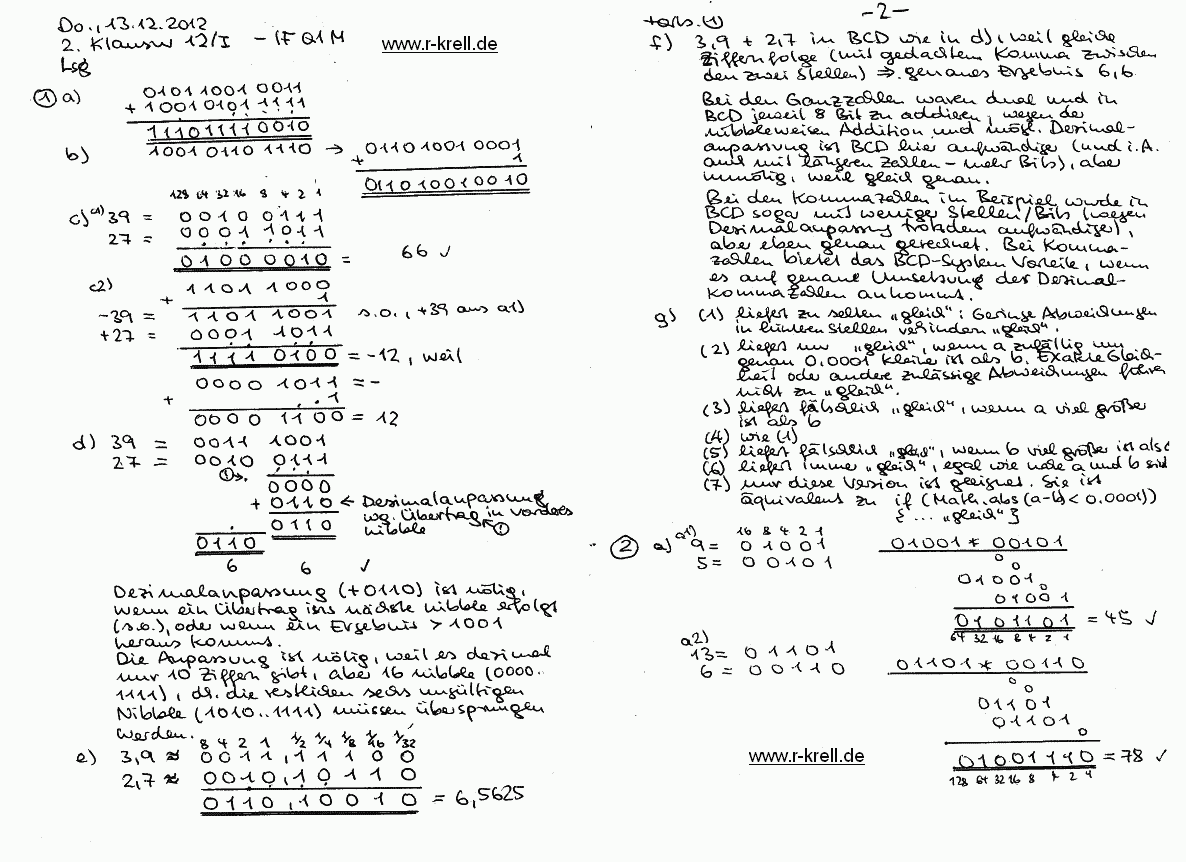 Do., 13.12.2012
2. Klausur 12/I - IF Q1 M
www.r-krell.de
Lsg
① a) 0101 1001 0011
+ 1001 0101 1111
1110 1111 0010
b) 1001 0110 1110 → 0110 1001 0001
+ 1
0110 1001 0010
128 64 32 16 8 4 2 1
c) c1) 39 = 0 0 1 0 0 1 1 1
27 = 0 0 0 1 1 0 1 1
0 1 0 0 0 0 1 0 = 66 ✓
c2) 1 1 0 1 1 0 0 0
+ 1
-39 = 1 1 0 1 1 0 0 1 s.o., +39 aus a1)
+27 = 0 0 0 1 1 0 1 1
1 1 1 1 0 1 0 0 = -12, weil
0 0 0 0 1 0 1 1 = -
+ 1
0 0 0 0 1 1 0 0 = 12
d) 39 = 0011 1001
27 = 0010 0111
① 0000
+ 0110 ← Dezimalanpassung
0110 wg. Übertrag in vorderes
nibble ①
0110
6 6 ✓
Dezimalanpassung (+0110) ist nötig,
wenn ein Übertrag ins nächste nibble erfolgt
(s.o.), oder wenn ein Ergebnis > 1001
heraus kommt.
Die Anpassung ist nötig, weil es dezimal
nur 10 Ziffern gibt, aber 16 nibble (0000..
1111), d.h. die restlichen sechs ungültigen
Nibble (1010..1111) müssen übersprungen
werden.
8 4 2 1 1/2 1/4 1/8 1/16 1/32
e) 3,9 ≈ 0 0 1 1 , 1 1 1 0 0
2,7 ≈ 0 0 1 0 , 1 0 1 1 0
0 1 1 0 , 1 0 0 1 0 = 6,5625
-2-
f) 3,9 + 2,7 in BCD wie in d), weil gleiche
Ziffernfolge (mit gedachtem Komma zwischen
den zwei Stellen) ⇒ genaues Ergebnis 6,6
Bei den Ganzzahlen waren dual und in
BCD jeweil 8 Bit zu addieren, wegen der
nibbleweisen Addition und mögl. Dezimal-
anpassung ist BCD hier aufwändiger (und i.A.
auch mit längeren Zahlen - mehr Bits), aber
unnötig, weil gleich genau.
Bei den Kommazahlen im Beispiel wurde in
BCD sogar mit weniger Stellen/Bits (wegen
Dezimalanpassung trotzdem aufwändiger),
aber eben genau gerechnet. Bei Komma-
zahlen bietet das BCD-System Vorteile, wenn
es auf genaue Umsetzung der Dezimal-
Kommazahlen ankommt.
g) (1) liefert zu selten „gleich“: Geringe Abweichungen
in hinteren Stellen verhindern „gleich“.
(2) liefert nur „gleich“, wenn a zufällig um
genau 0.0001 kleiner ist als b. Exakte Gleich-
heit oder andere zulässige Abweichungen führen
nicht zu „gleich“.
(3) liefert fälschlich „gleich“, wenn a viel größer
ist als b
(4) wie (1)
(5) liefert fälschlich „gleich“, wenn b viel größer ist als a
(6) liefert immer „gleich“, egal wie nahe a und b sind
(7) nur diese Version ist geeignet. Sie ist
äquivalent zu if (Math.abs (a-b) < 0.0001))
{ ... „gleich“ }
② a) a1) 16 8 4 2 1
9 = 0 1 0 0 1
5 = 0 0 1 0 1
01001 * 00101
0
0
01001
0
01001
0101101 = 45 ✓
64 32 16 8 4 2 1
a2)
13 = 0 1 1 0 1
6 = 0 0 1 1 0
01101 * 00110
0
0
01101
01101
0
01001110 = 78 ✓
128 64 32 16 8 4 2 1
www.r-krell.de